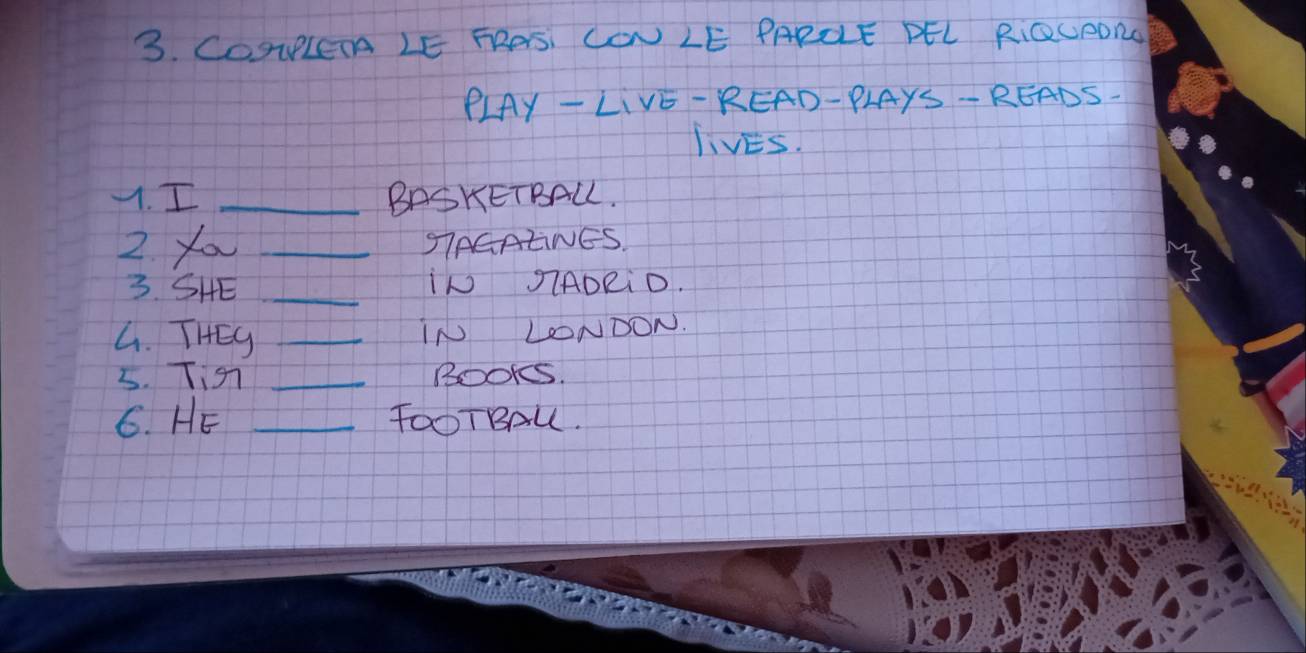 3. COMPLETA LE FRASI CON LE PAROLE DEL RIQUADRO
PLAY - LIVE - READ - PLAYS - READS -
lIVES.
1. I ______ BASKETBALL.
2. You ______ MAGAZINES.
3. SHE ______ IN MADRID.
4. THEY ______ IN LONDON.
5. TiM ______ BOOKS.
6. HE ______ FOOTBALL.